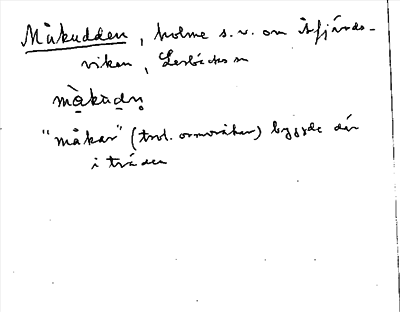 Måkudden, holme s.v. om Åfjärds-
viken, Lerbäcks sn
måkudn
"måkar" (trol. ormvråkar) byggde där
i träden